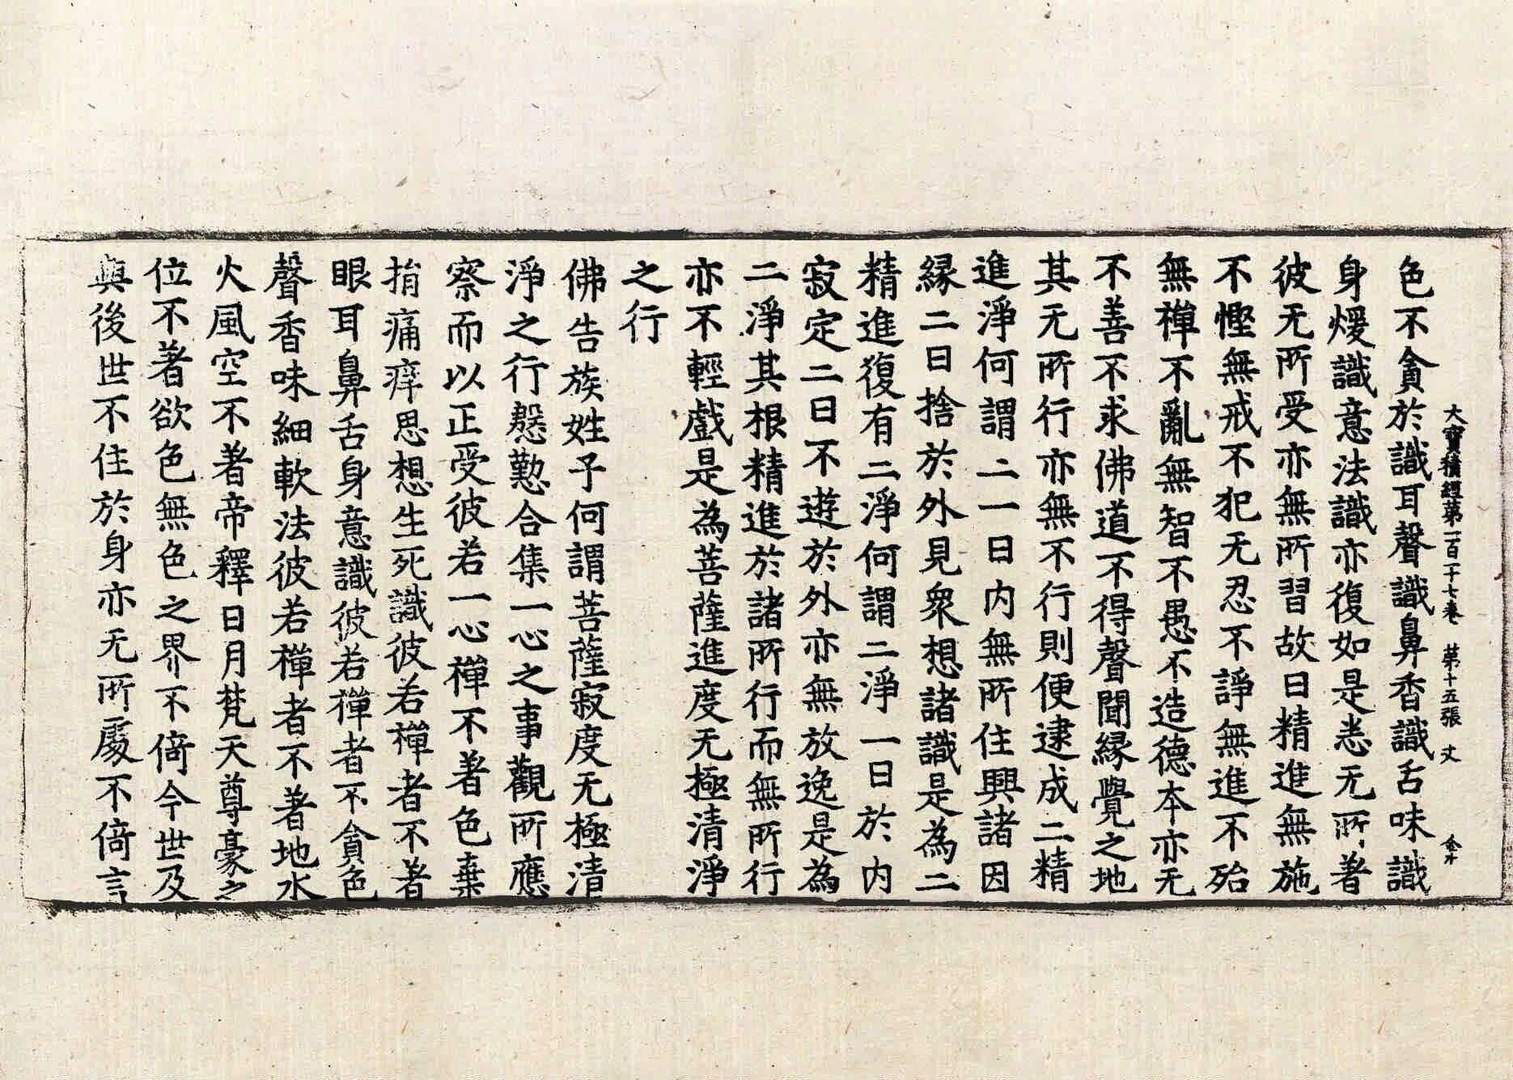 大寶積經第一百一十七卷 第十五張 文
色不貪於識耳聲識鼻香識舌味識
身煖識意法識亦復如是悉无所著
彼无所受亦無所習故曰精進無施
不慳無戒不犯无忍不諍無進不殆
無禪不亂無智不愚不造德本亦无
不善不求佛道不得聲聞緣覺之地
其无所行亦無不行則便逮成二精
進淨何謂二一曰內無所住興諸因
緣二曰捨於外見衆想諸識是為二
精進復有二淨何謂二淨一曰於內
寂定二曰不遊於外亦無放逸是為
二淨其根精進於諸所行而無所行
亦不輕戲是為菩薩進度无極清淨
之行
佛告族姓子何謂菩薩寂度无極清
淨之行慇懃合集一心之事觀所應
察而以正受彼若一心禪不著色棄
捐痛痒思想生死識彼若禪者不著
眼耳鼻舌身意識彼若禪者不貪色
聲香味細軟法彼若禪者不著地水
火風空不著帝釋日月梵天尊豪之
位不著欲色無色之界不倚今世及
與後世不住於身亦无所處不倚言